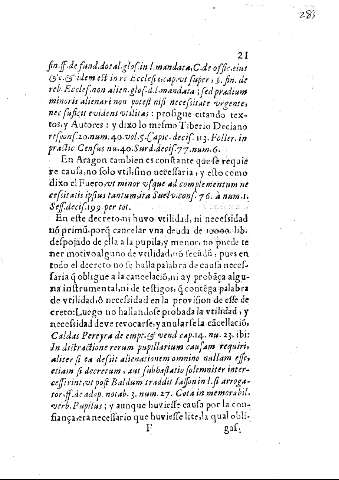 283
21
fin.ff.de fund.dotal.glos.in l.mandata, C.de offic.eius
&c.& idem est in re Ecclesi. cap.vt super, §. fin. de
reb. Eccles.non alien.glos.d.l.mandata; sed prædium
minoris alienari non potest nisi necessitate vrgente,
nec suficit euidens vtilitas: prosigue citando tex-
tos, y Autores: y dixo lo mesmo Tiberio Deciano
respons.20.num.40.vol.5.Capic.decis.113.Foller.in
practic Census nu.40.Surd.decis.77.num.6.
En Aragon tambien es constante que se requie
re causa, no solo vtil, sino necessaria, y esto como
dixo el Fuero, vt minor vsque ad complementum ne
cessitatis ipsius tantum, ita Suelu.cons.76. à num.1.
Sess.decis.199.per tot.
En este decreto, ni huvo vtilidad, ni necessidad
nõ primũ, porq̃ cancelar vna deuda de 10000. lib.
despojado de ella a la pupila, y menor, no puede te
ner motivo alguno de vtilidad, nõ secũdũ, pues en
todo el decreto no se halla palabra de causa neces-
saria q̃ obligue a la cancelaciõ, ni ay probãça algu-
na instrumental, ni de testigos, q̃ contẽga palabra
de vtilidad, ô necessidad en la provision de esse de
creto: Luego no hallandose probada la vtilidad, y
necessidad deve revocarse, y anularse la cãcellaciõ,
Caldas Pereyra de empt. & vend cap.14. nu. 23. ibi:
In distractione rerum pupillarium causam requiri,
aliter si ea desit alienationem omnino nullam esse,
etiam si decretum, aut subhastatio solemniter inter-
cesserint, vt post Baldum tradit Iasson in l.si arroga-
tor.ff.de adop. notab. 3. num. 27. Cota in memorabil.
verb. Pupilus; y aunque huviesse causa por la con-
fiança, era necessario que huviesse lite, la qual obli-
F gas-